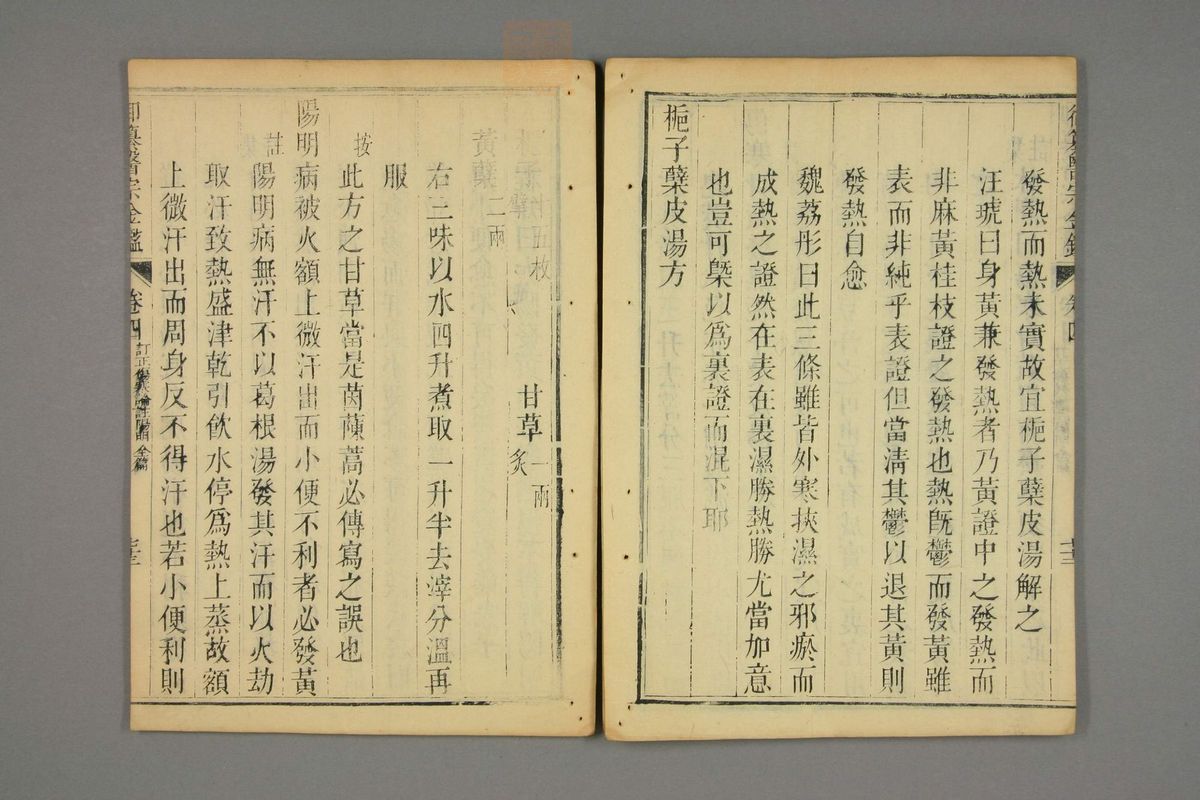 發熱而熱未實故宜梔子蘗皮湯解之
汪琥曰身黃兼發熱者乃黃證中之發熱而
非麻黃桂枝證之發熱也熱既鬱而發黃雖
表而非純乎表證但當清其鬱以退其黃則
發熱自愈
魏荔彤曰此三條雖皆外寒挾濕之邪瘀而
成熱之證然在表在裏濕勝熱勝尤當加意
也豈可槩以爲裏證而混下耶
梔子蘗皮湯方
枚 甘草一兩炙
黃蘗二兩
右三味以水四升煮取一升半去滓分溫再
服
按此方之甘草當是茵蔯蒿必傳寫之誤也
陽明病被火額上微汗出而小便不利者必發黃
註陽明病無汗不以葛根湯發其汗而以火劫
取汗致熱盛津乾引飲水停爲熱上蒸故額
上微汗出而周身反不得汗也若小便利則
御纂醫宗金鑑 卷四 訂正傷寒論註陽明全篇